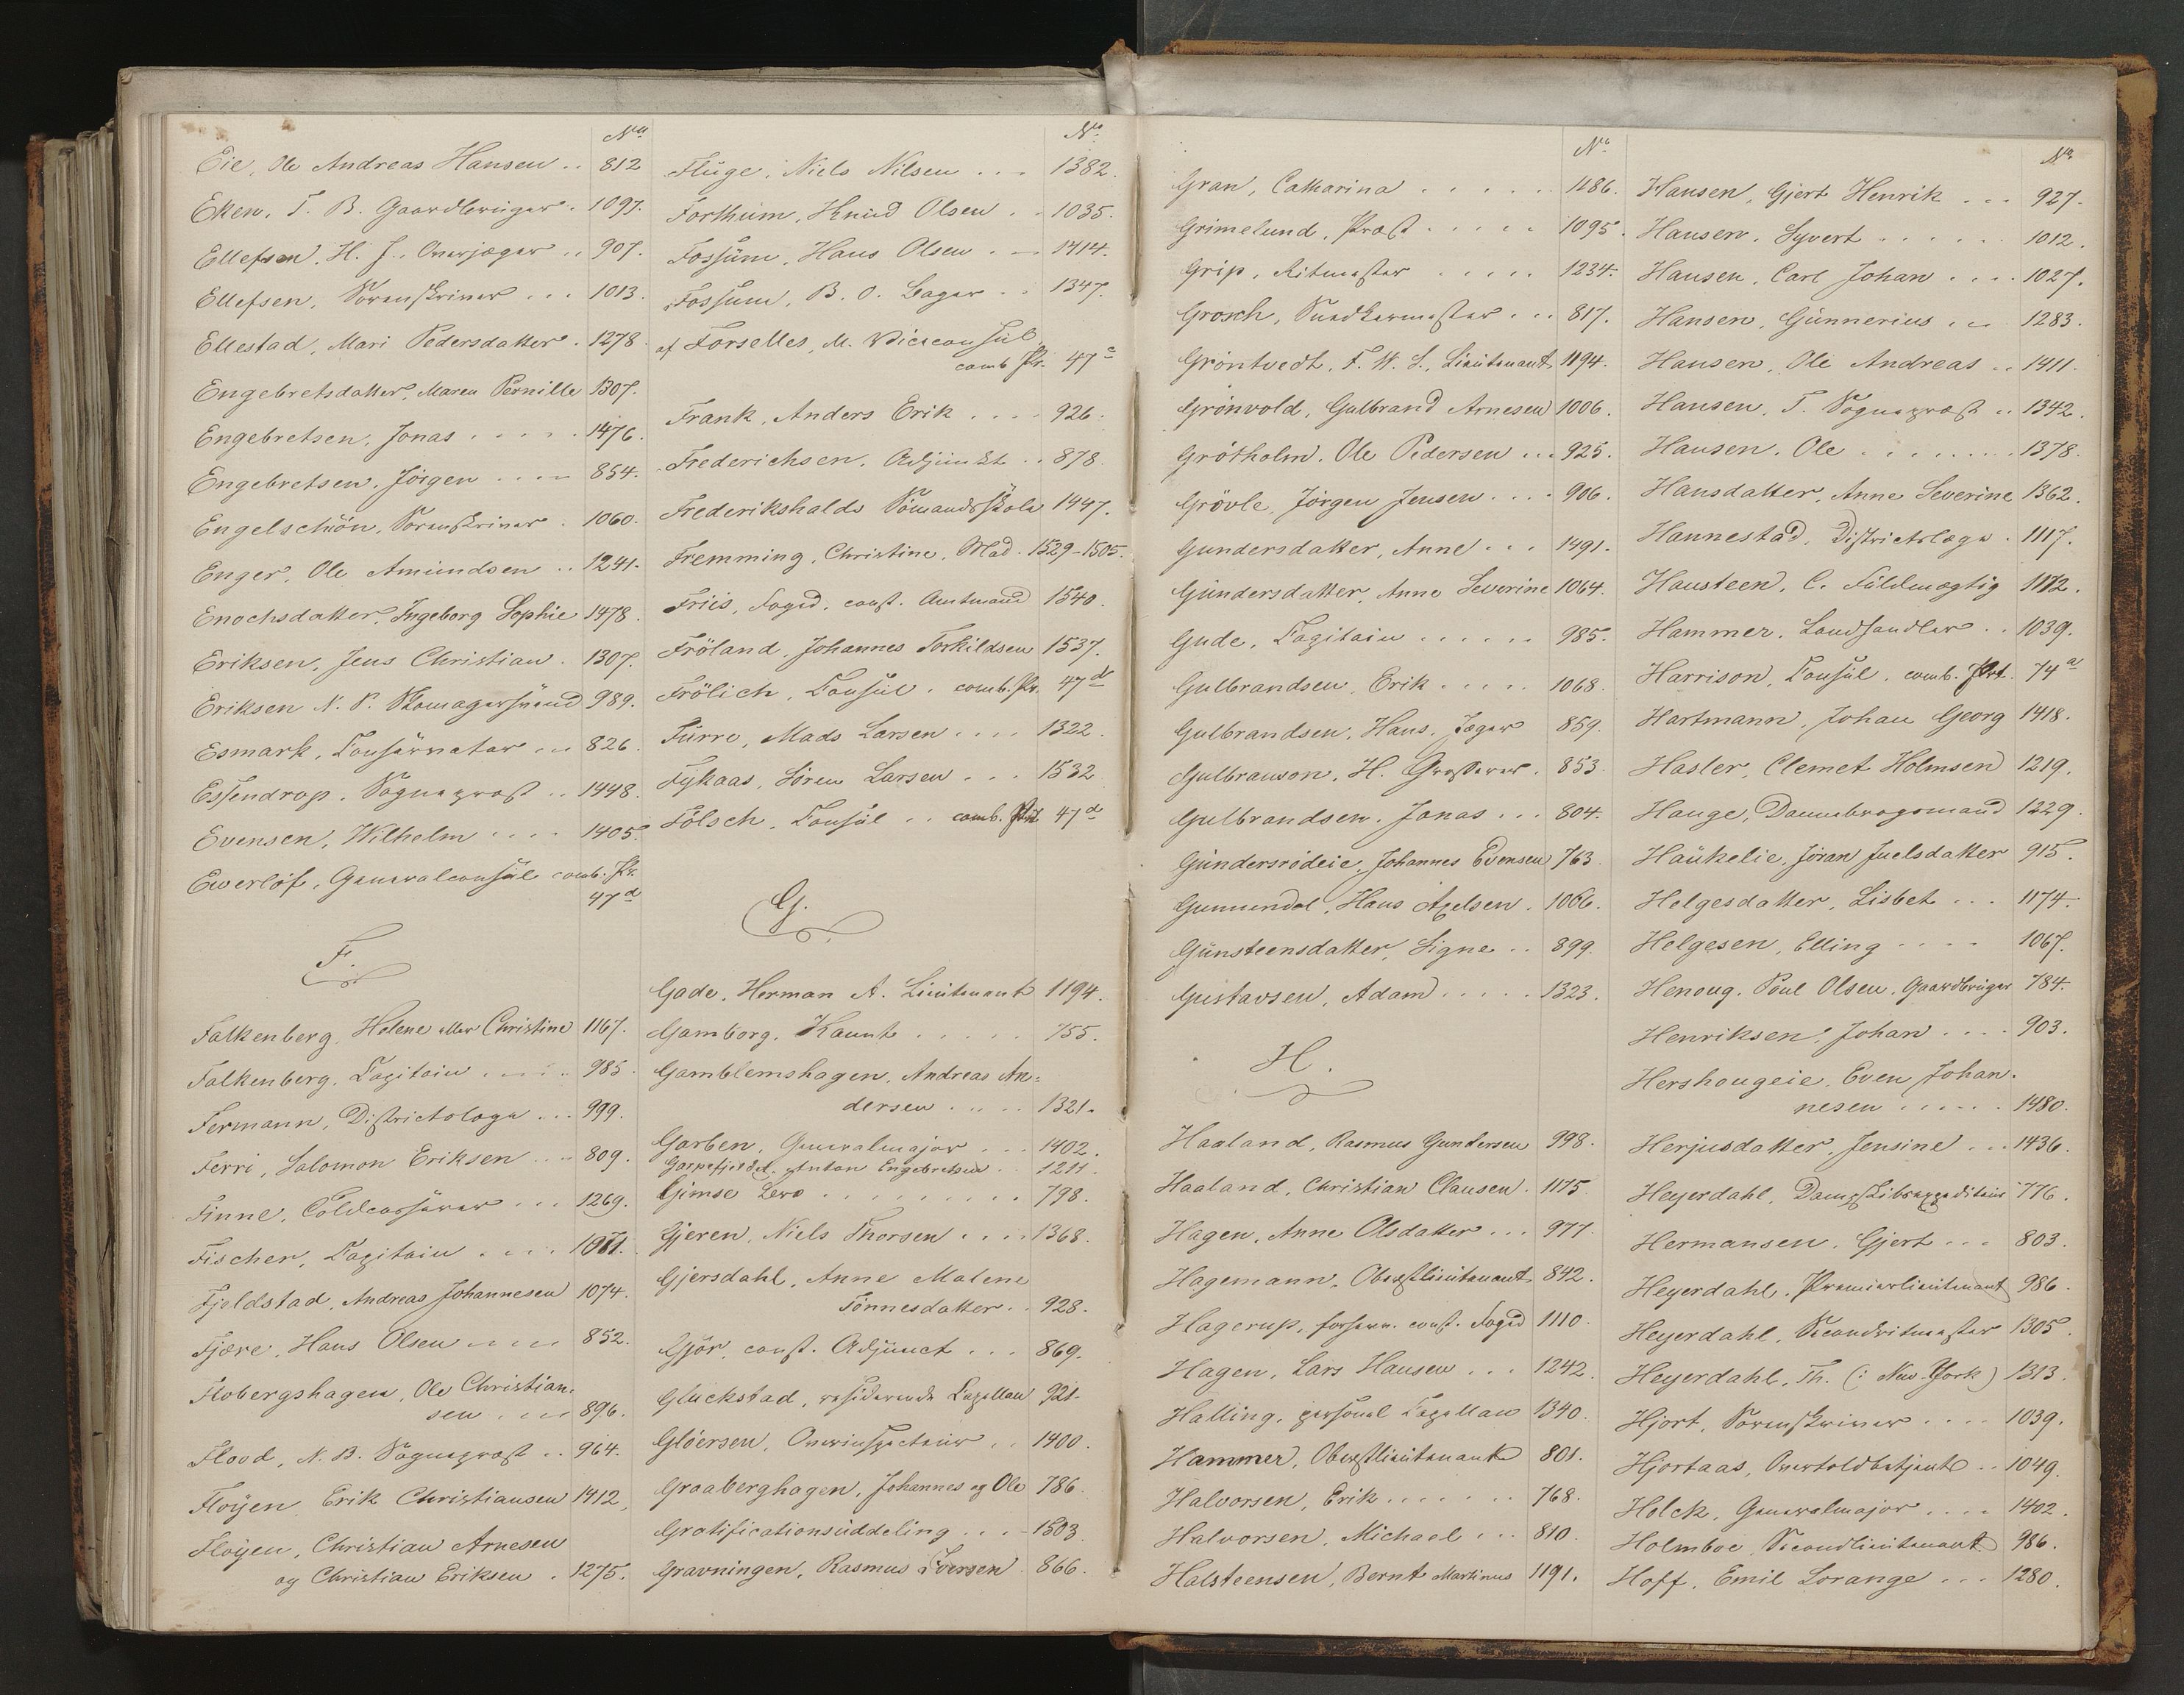 No
Eie, Ole Andreas Hansen .. 812
Eken, T. B. Gaardbruger . 1097.
Ellefsen, H. J., Overjæger .. 907.
Ellefsen, Sorenskriver ... 1013.
Ellestad, Mari Pedersdatter . 1278.
Engebretsdatter, Maren Pernille 1307.
Engebretsen, Jonas ..... 1476.
Engebretsen, Jörgen .... 854.
Engelschiön, Sorenskriver . 1060.
Enger, Ole Amundsen .. 1241.
Enochsdatter, Ingeborg Sophie 1478.
Eriksen, Jens Christian . 1307.
Eriksen N. P. Skomagersvend 989.
Esmark, Conservator ... 826.
Essendrop, Sogneprest .. 1448.
Evensen, Wilhelm .... 1405.
Ewerlöf, Generalconsul comb. Pr.
47 d
F.
Falkenberg, Helene eller Christine 1167.
Falkenberg, Capitain ..... 985.
Fermann, Districtslæge ... 999.
Ferri, Salomon Eriksen ... 809.
Finne, Toldcasserer ... 1269.
Fischer, Capitain .... 1061.
Fjeldstad, Andreas Johannesen 1074.
Fjære, Hans Olsen .... 852.
Flobergshagen, Ole Christian-
sen .... 896.
Flood, N. B. Sogneprest .. 964.
Flöyen, Erik Christiansen 1412.
Flöyen, Christian Arnesen
og Christian Eriksen . 1275.
No.
Fluge, Niels Nilsen ... 1382.
Forthun, Knud Olsen .. 1035.
Fossum, Hans Olsen ... 1414.
Fossum, B. O. Bager .. 1347.
af Forselles, M. Viceconsul
comb. Pr. 47 c
Frank, Anders Erik .... 926.
Frederichsen, Adjunkt .. 878.
Frederikshalds Sömandsskole 1447.
Fremming, Christine, Mad. 1529-1505.
Friis, Foged, const. Amtmand 1540.
Fröland, Johannes Torkildsen 1537.
Frölich, Consul . comb. Pr. 47 d
Furre, Mads Larsen .... 1322.
Fykaas, Sören Larsen ... 1532
Fölsch, Consul .. comb. Prt. 47 d
G.
Gade, Herman A. Lieutenant 1194.
Gamborg, Kaunt ..... 755.
Gamblemshagen, Andreas An-
dersen ..... 1321.
Garben, Generalmajor ... 1402.
Garpefjeldet, Anton Engebretsen .. 1211.
Gimse Lers ........ 798.
Gjeren, Niels Thorsen .... 1368.
Gjersdahl, Anne Malene
Tönnesdatter .. 928.
Gjör, const. Adjunct ... 869.
Gluckstad, residerende Capellan 921.
Glöersen, Overinspecteur .. 1400.
Graaberghagen, Johannes og Ole 786.
Gratificationsuddeling ... 1503.
Gravningen, Rasmus Iversen . 866.
No.
Gran, Catharina ..... 1186.
Grimelund, Præst ..... 1095.
Grip, Ritmester ..... 1234.
Grosch, Stadskermester ... 817.
Gröntvedt, F. W. S., Lieutenant 1194.
Grönvold, Gulbrand Arnesen 1006.
Grötholm, Ole Pedersen ... 925.
Grövle, Jörgen Jensen .... 906.
Gundersdatter, Anne ... 1491.
Gundersdatter, Anne Severine 1064.
Gude, Capitain ...... 985.
Gulbrandsen, Erik .... 1068.
Gulbrandsen, Hans, Jæger 859.
Gulbranson, H. Grosserer . 853.
Gulbrandsen, Jonas ... 804.
Gundersrödeie, Johannes Evensen 763.
Gunnundal, Hans Axelsen . 1066.
Gunsteensdatter, Signe .. 899.
Gustavsen, Adam ..... 1323.
H.
Haaland, Rasmus Gundersen 998.
Haaland, Christian Clausen . 1175.
Hagen, Anne Olsdatter ... 977.
Hagemann, Oberstlieutenant 842.
Hagerup, forhenv. const. Foged 1110.
Hagen, Lars Hansen ... 1242.
Halling, personel Capellan 1340.
Hammer, Oberstlieutenant 801.
Halvorsen, Erik ....... 768.
Halvorsen, Michael ... 810.
Halsteensen, Bernt Martinus 1191.
No.
Hansen, Gjert Henrik ... 927.
Hansen, Syvert ...... 1012.
Hansen, Carl Johan .... 1027.
Hansen, Gunnerius ... 1283.
Hansen, Ole Andreas .. 1411.
Hansen, T. Sogneprest .. 1342.
Hansen, Ole ........ 1378.
Hansdatter, Anne Severine 1362.
Hannestad, Districtslæge . 1117.
Hansteen, C. Fuldmægtig 1172.
Hammer, Landhandler .. 1039.
Harrison, Consul, comb. Prt. 74 a
Hartmann, Johan Georg 1418.
Hasler, Clemet Holmsen 1219.
Hauge, Dannebrogsmand 1229.
Haukelie, Jöran Juelsdatter 915.
Helgesdatter, Lisbet ... 1174.
Helgesen, Elling .... 1067.
Henoug, Poul Olsen, Gaardbruger 784.
Henriksen, Johan .... 903.
Hershougeie, Even Johan-
nesen ..... 1480.
Herjusdatter, Jensine ... 1436.
Heyerdahl, Dampskibsexpediteur 776.
Hermansen, Gjert ... 803.
Heyerdahl, Premierlieutenant 986.
Heyerdahl, Secondritmester 1305.
Heyerdahl, Th. (: New-York) 1313.
Hjort, Sorenskriver .... 1039.
Hjortaas, Overtoldbetjent .. 1049.
Holck, Generalmajor .... 1402.
Holmboe Secondlieutenant 986.
Hoff, Emil Lorange ... 1280.